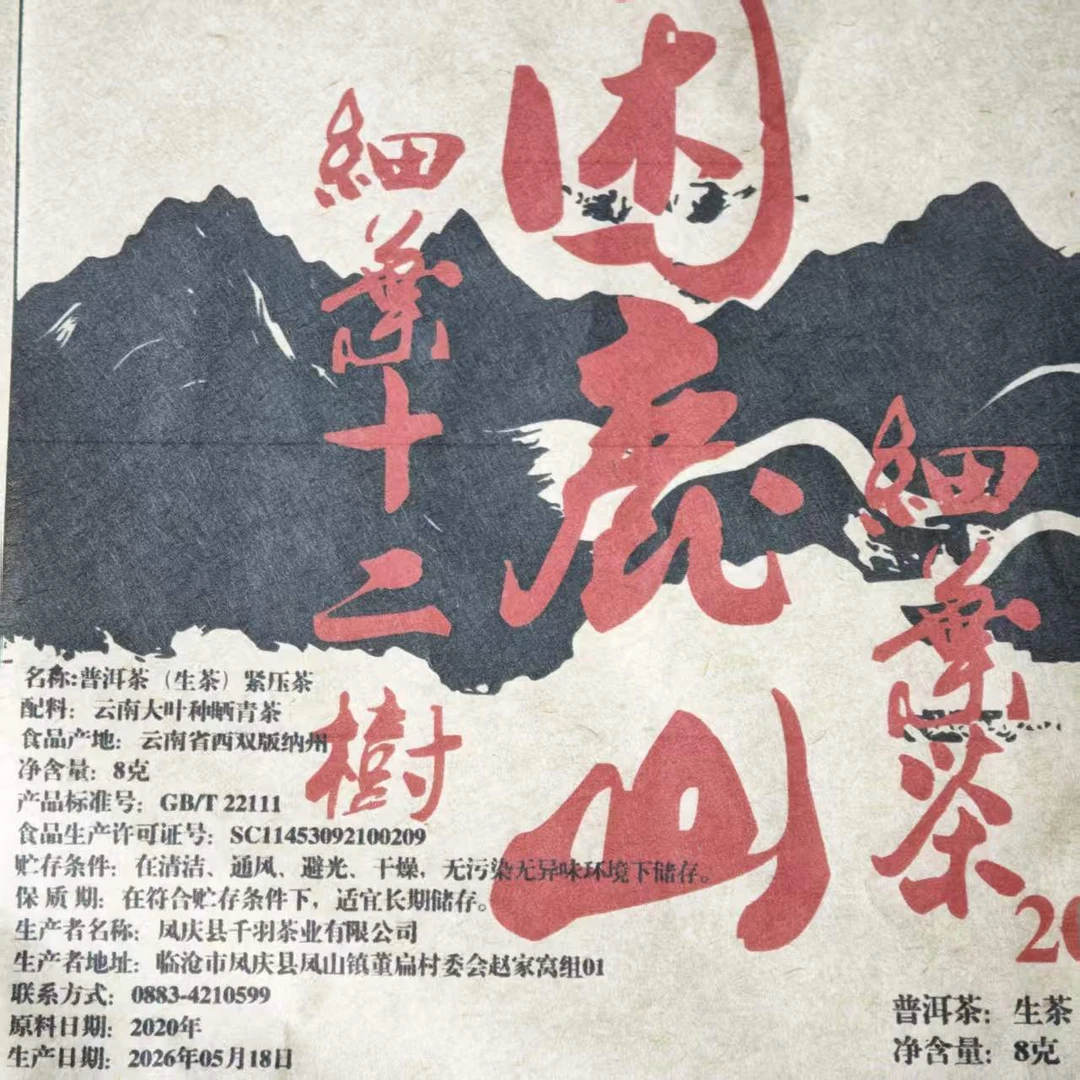 困鹿山
細葉十二樹
細葉茶
20
名称:普洱茶（生茶）紧压茶
配料：云南大叶种晒青茶
食品产地：云南省西双版纳州
净含量：8克
产品标准号：GB/T 22111
食品生产许可证号：SC11453092100209
贮存条件：在清洁、通风、避光、干燥，无污染无异味环境下储存。
保 质 期：在符合贮存条件下，适宜长期储存。
生产者名称：凤庆县千羽茶业有限公司
生产者地址：临沧市凤庆县凤山镇董扁村委会赵家窝组01
联系方式：0883-4210599
原料日期：2020年
生产日期：2026年05月18日
普洱茶：生茶
净含量：8克